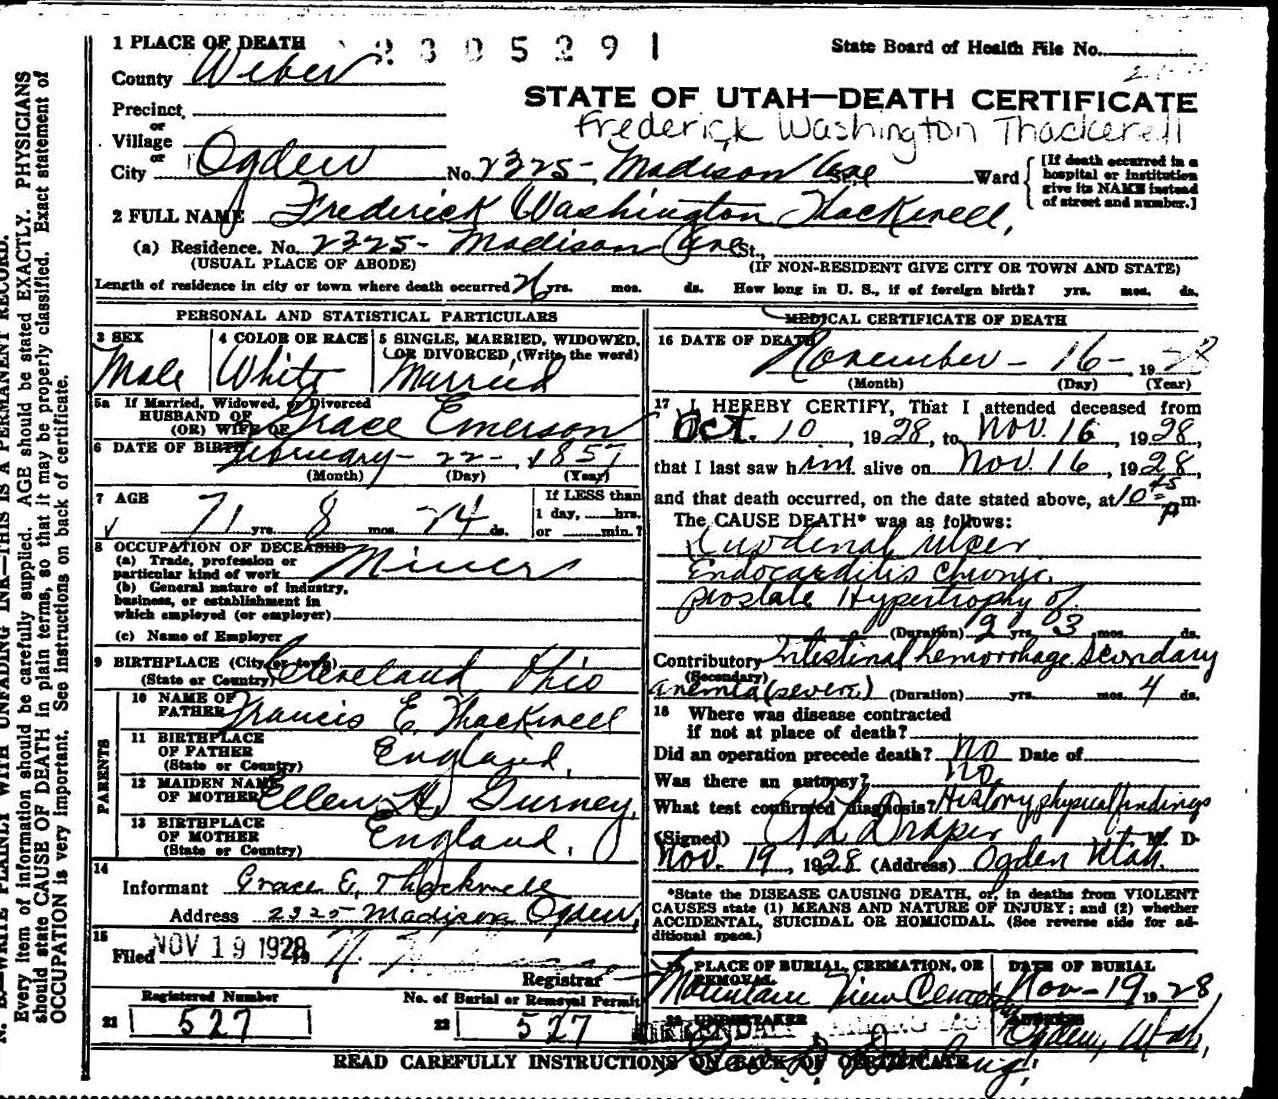 1 PLACE OF DEATH 2305291 State Board of Health File No.
County Weber
STATE OF UTAH—DEATH CERTIFICATE
Precinct
Frederick Washington Thackerell
or
Village
or
City Ogden No. 2325- Madison Ave St. Ward
[If death occurred in a
hospital or institution
give its NAME instead
of street and number.]
2 FULL NAME Frederick Washington Thackwell,
(a) Residence. No. 2325- Madison Ave St.,
(USUAL PLACE OF ABODE) (IF NON-RESIDENT GIVE CITY OR TOWN AND STATE)
Length of residence in city or town where death occurred 26 yrs. mos. ds. How long in U. S., if of foreign birth? yrs. mos. ds.
PERSONAL AND STATISTICAL PARTICULARS
3 SEX 4 COLOR OR RACE 5 SINGLE, MARRIED, WIDOWED,
OR DIVORCED, (Write the word)
Male White Married
5a If Married, Widowed, or Divorced
HUSBAND OF
(OR) WIFE OF Grace Emerson
6 DATE OF BIRTH February- 22-, 1857
(Month) (Day) (Year)
7 AGE If LESS than
1 day, hrs.
71 yrs. 8 mos. 24 ds. or min.?
8 OCCUPATION OF DECEASED
(a) Trade, profession or
particular kind of work Miner
(b) General nature of industry,
business, or establishment in
which employed (or employer)
(c) Name of Employer
9 BIRTHPLACE (City or town)
(State or Country) Cleveland Ohio
PARENTS
10 NAME OF
FATHER Francis E. Thackwell
11 BIRTHPLACE
OF FATHER England,
(State or Country)
12 MAIDEN NAME
OF MOTHER Ellen H. Gurney,
13 BIRTHPLACE
OF MOTHER England,
(State or Country)
14
Informant Grace E. Thackwell
Address 2325 Madison Ogden,
15
Filed NOV 19 1928
Registrar
Registered Number No. of Burial or Removal Permit
21 527 22 527
MEDICAL CERTIFICATE OF DEATH
16 DATE OF DEATH November- 16-, 1928
(Month) (Day) (Year)
17 I HEREBY CERTIFY, That I attended deceased from
Oct. 10, 1928, to Nov. 16, 1928,
that I last saw him alive on Nov. 16, 1928,
and that death occurred, on the date stated above, at 10 45 P m.
The CAUSE DEATH* was as follows:
Duodenal Ulcer
Endocarditis Chronic
prostate Hypertrophy of
(Duration) 2 yrs. 3 mos. ds.
Contributory Intestinal hemorrhage Secondary
(Secondary)
anemia (severe) (Duration) yrs. mos. 4 ds.
18 Where was disease contracted
if not at place of death?
Did an operation precede death? No Date of
Was there an autopsy? No
What test confirmed diagnosis? History, physical findings
(Signed) Draper M. D.
Nov. 19, 1928 (Address) Ogden Utah.
*State the DISEASE CAUSING DEATH, or, in deaths from VIOLENT
CAUSES state (1) MEANS AND NATURE OF INJURY; and (2) whether
ACCIDENTAL, SUICIDAL OR HOMICIDAL. (See reverse side for ad-
ditional space.)
PLACE OF BURIAL, CREMATION, OR
REMOVAL DATE OF BURIAL
Mountain View Cemetery Nov-19 1928,
20 UNDERTAKER ADDRESS
Ogden, Utah,
READ CAREFULLY INSTRUCTIONS ON BACK OF CERTIFICATE
N. B.—WRITE PLAINLY WITH UNFADING INK—THIS IS A PERMANENT RECORD.
Every item of information should be carefully supplied. AGE should be stated EXACTLY. PHYSICIANS
should state CAUSE OF DEATH in plain terms, so that it may be properly classified. Exact statement of
OCCUPATION is very important. See instructions on back of certificate.